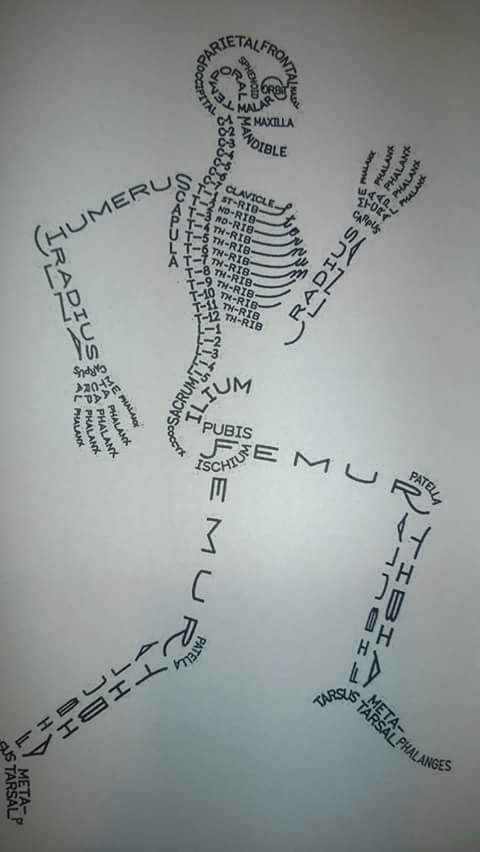 PARIETAL
FRONTAL
OCCIPITAL
TEMPORAL
SPHENOID
NASAL
ORBIT
MALAR
MAXILLA
MANDIBLE
C-1
C-2
C-3
C-4
C-5
C-6
C-7
HUMERUS
SCAPULA
CLAVICLE
STERNUM
T-1 ST-RIB
T-2 ND-RIB
T-3 RD-RIB
T-4 TH-RIB
T-5 TH-RIB
T-6 TH-RIB
T-7 TH-RIB
T-8 TH-RIB
T-9 TH-RIB
T-10 TH-RIB
T-11 TH-RIB
T-12 TH-RIB
L-1
L-2
L-3
L-4
L-5
RADIUS
ULNA
CARPUS
METACARPAL
PHALANX
PHALANX
PHALANX
PHALANX
PHALANX
RADIUS
ULNA
CARPUS
METACARPAL
PHALANX
PHALANX
PHALANX
PHALANX
PHALANX
SACRUM
COCCYX
ILIUM
PUBIS
ISCHIUM
FEMUR
PATELLA
TIBIA
FIBULA
TARSUS
META-
TARSAL
PHALANGES
FEMUR
PATELLA
TIBIA
FIBULA
SUS
META-
TARSAL
P